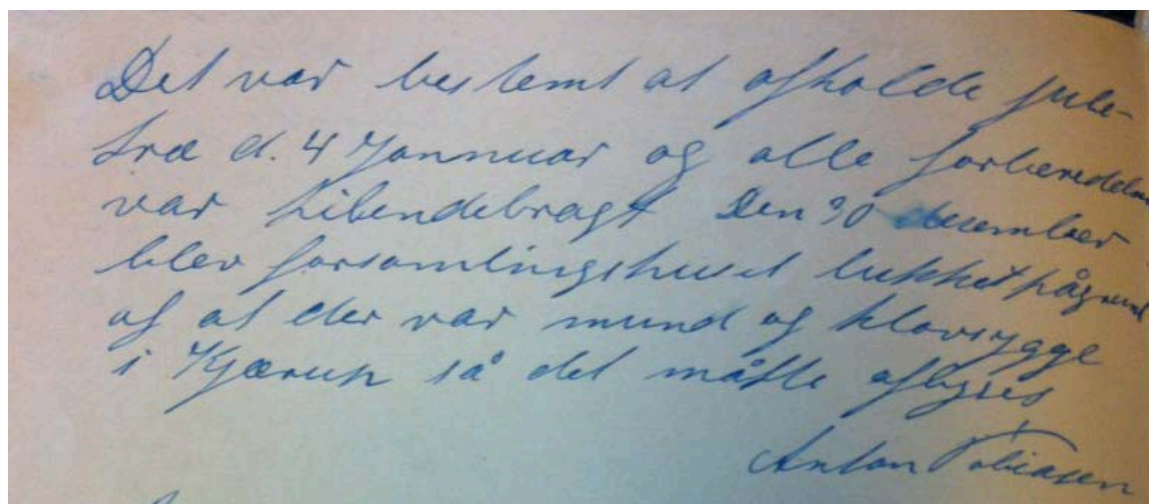 Det var bestemt at afholde jule-
træ d. 4 Jannuar og alle forberedelser
var tilendebragt Den 30 desember
blev forsamlingshuset lukket pågrund
af at der var mund og klovsygge
i Kjærup så det måtte aflyses
Anton Tobiasen